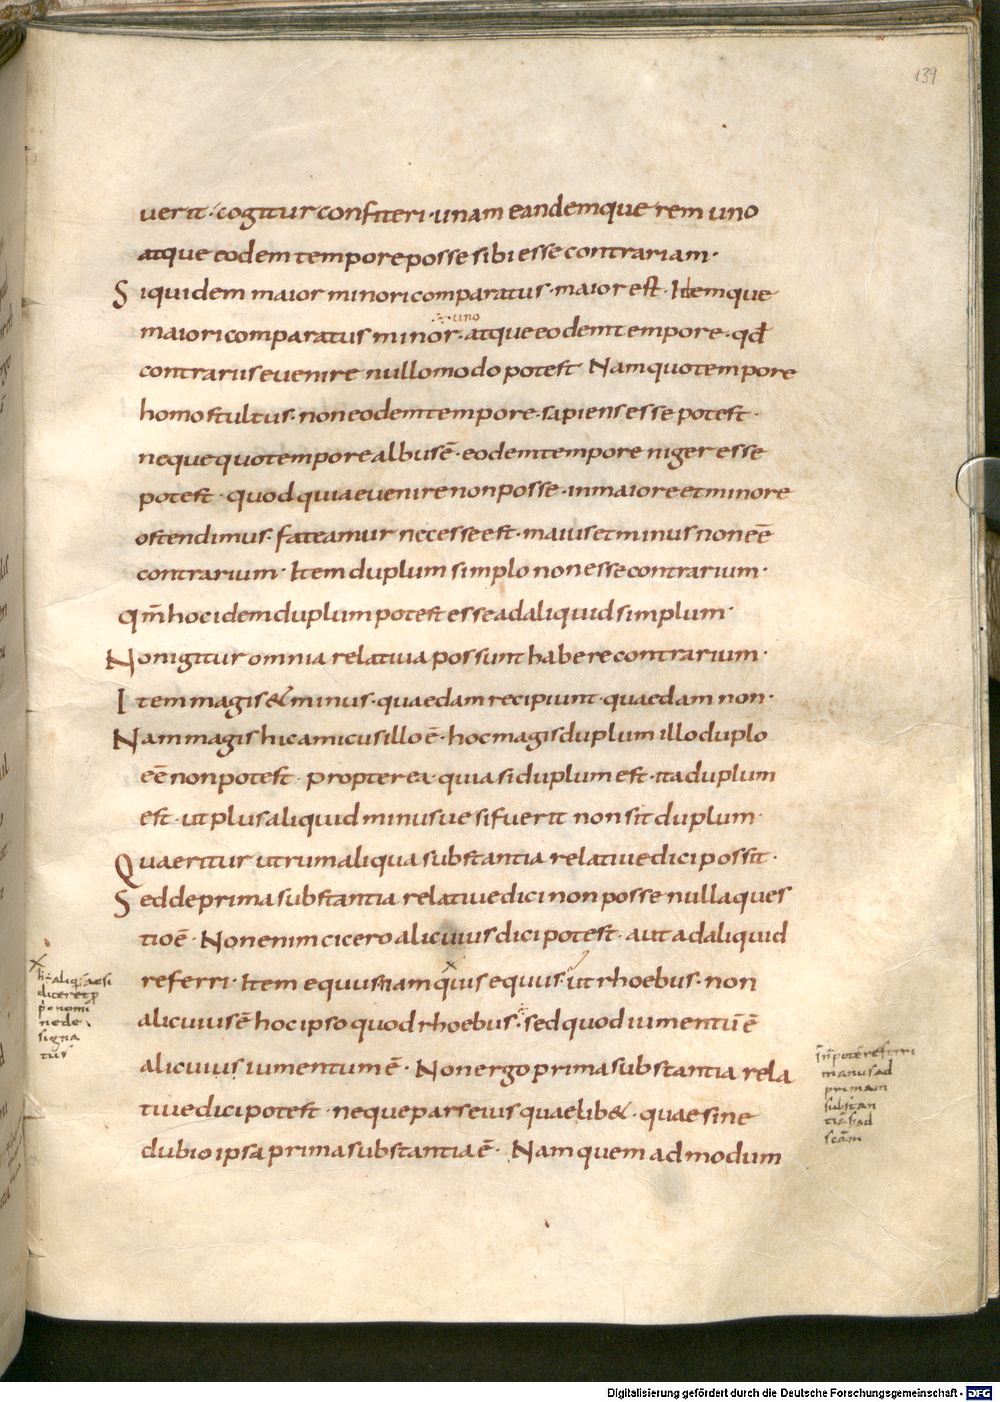 139
uerit · cogitur confiteri · unam eandemque rem uno
atque eodem tempore posse sibi esse contrariam ·
Siquidem maior minori comparatus · maior est · Itemque
uno
maiori comparatus minor · atque eodem tempore · qđ
contrarius euenire nullo modo potest · Nam quo tempore
homo stultus · non eodem tempore · sapiens esse potest ·
neque quo tempore albus ē · eodem tempore niger esse
potest · quod quia euenire non posse · in maiore et minore
ostendimus · fateamur necesse est · maius et minus non eē
contrarium · Item duplum simplo non esse contrarium ·
Qm̄ hoc idem duplum potest esse ad aliquid simplum ·
Non igitur omnia relatiua possunt habere contrarium ·
Item magis & minus · quaedam recipiunt · quaedam non ·
Nam magis hic amicus illo ē · hoc magis duplum illo duplo
eē non potest · propterea · quia si duplum est · ita duplum
est · ut plus aliquid minusue si fuerit non sit duplum ·
Quaeritur utrum aliqua substantia relatiue dici possit ·
Sed de prima substantia relatiue dici non posse nulla ques
tio ē · Non enim cicero alicuius dici potest · aut ad aliquid
referri · Item equus nam quis equus · ut rhoebus · non
alicuius ē hoc ipso quod rhoebus · sed quod iumentū ē
alicuius iumentum ē · Non ergo prima substantia rela
tiue dici potest · neque pars eius quaelib& · quae sine
dubio ipsa prima substantia ē · Nam quem ad modum
diceret
nomi
ne de
signa
tus
referri
manus ad
primam
substan
ad
Digitalisierung gefördert durch die Deutsche Forschungsgemeinschaft - DFG